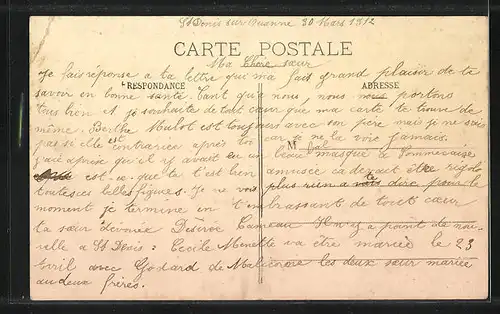 St Denis sur Ouanne 30 Mars 1912
CARTE POSTALE
Ma Chère sœur
RESPONDANCE
ADRESSE
Je fais réponse a ta lettre qui ma fait grand plaisir de te
savoir en bonne santé. Tant qu'a nous nous nous portons
tous bien et je souhaite de tout cœur que ma carte te trouve de
même. Berthe Mulot est toujours avec son père mais je ne sais
pas si elle est contrariée après toi car je ne la vois jamais.
M
j'ai apprise qu'il y avait eu un beau bal masqué a Sommecaise
est-ce que tu t'est bien amusée ca devait être rigolo
toutes ces belles figures. Je ne vois plus rien a te dire pour le
moment je termine en t'embrassant de tout cœur
ta sœur dévouée Désirée Cameau Il n'y a point de nou-
velle a St Denis : Cécile Menette va être mariée le 23
Avril avec Godard de Malicorne les deux sœur mariée
au deux frères.